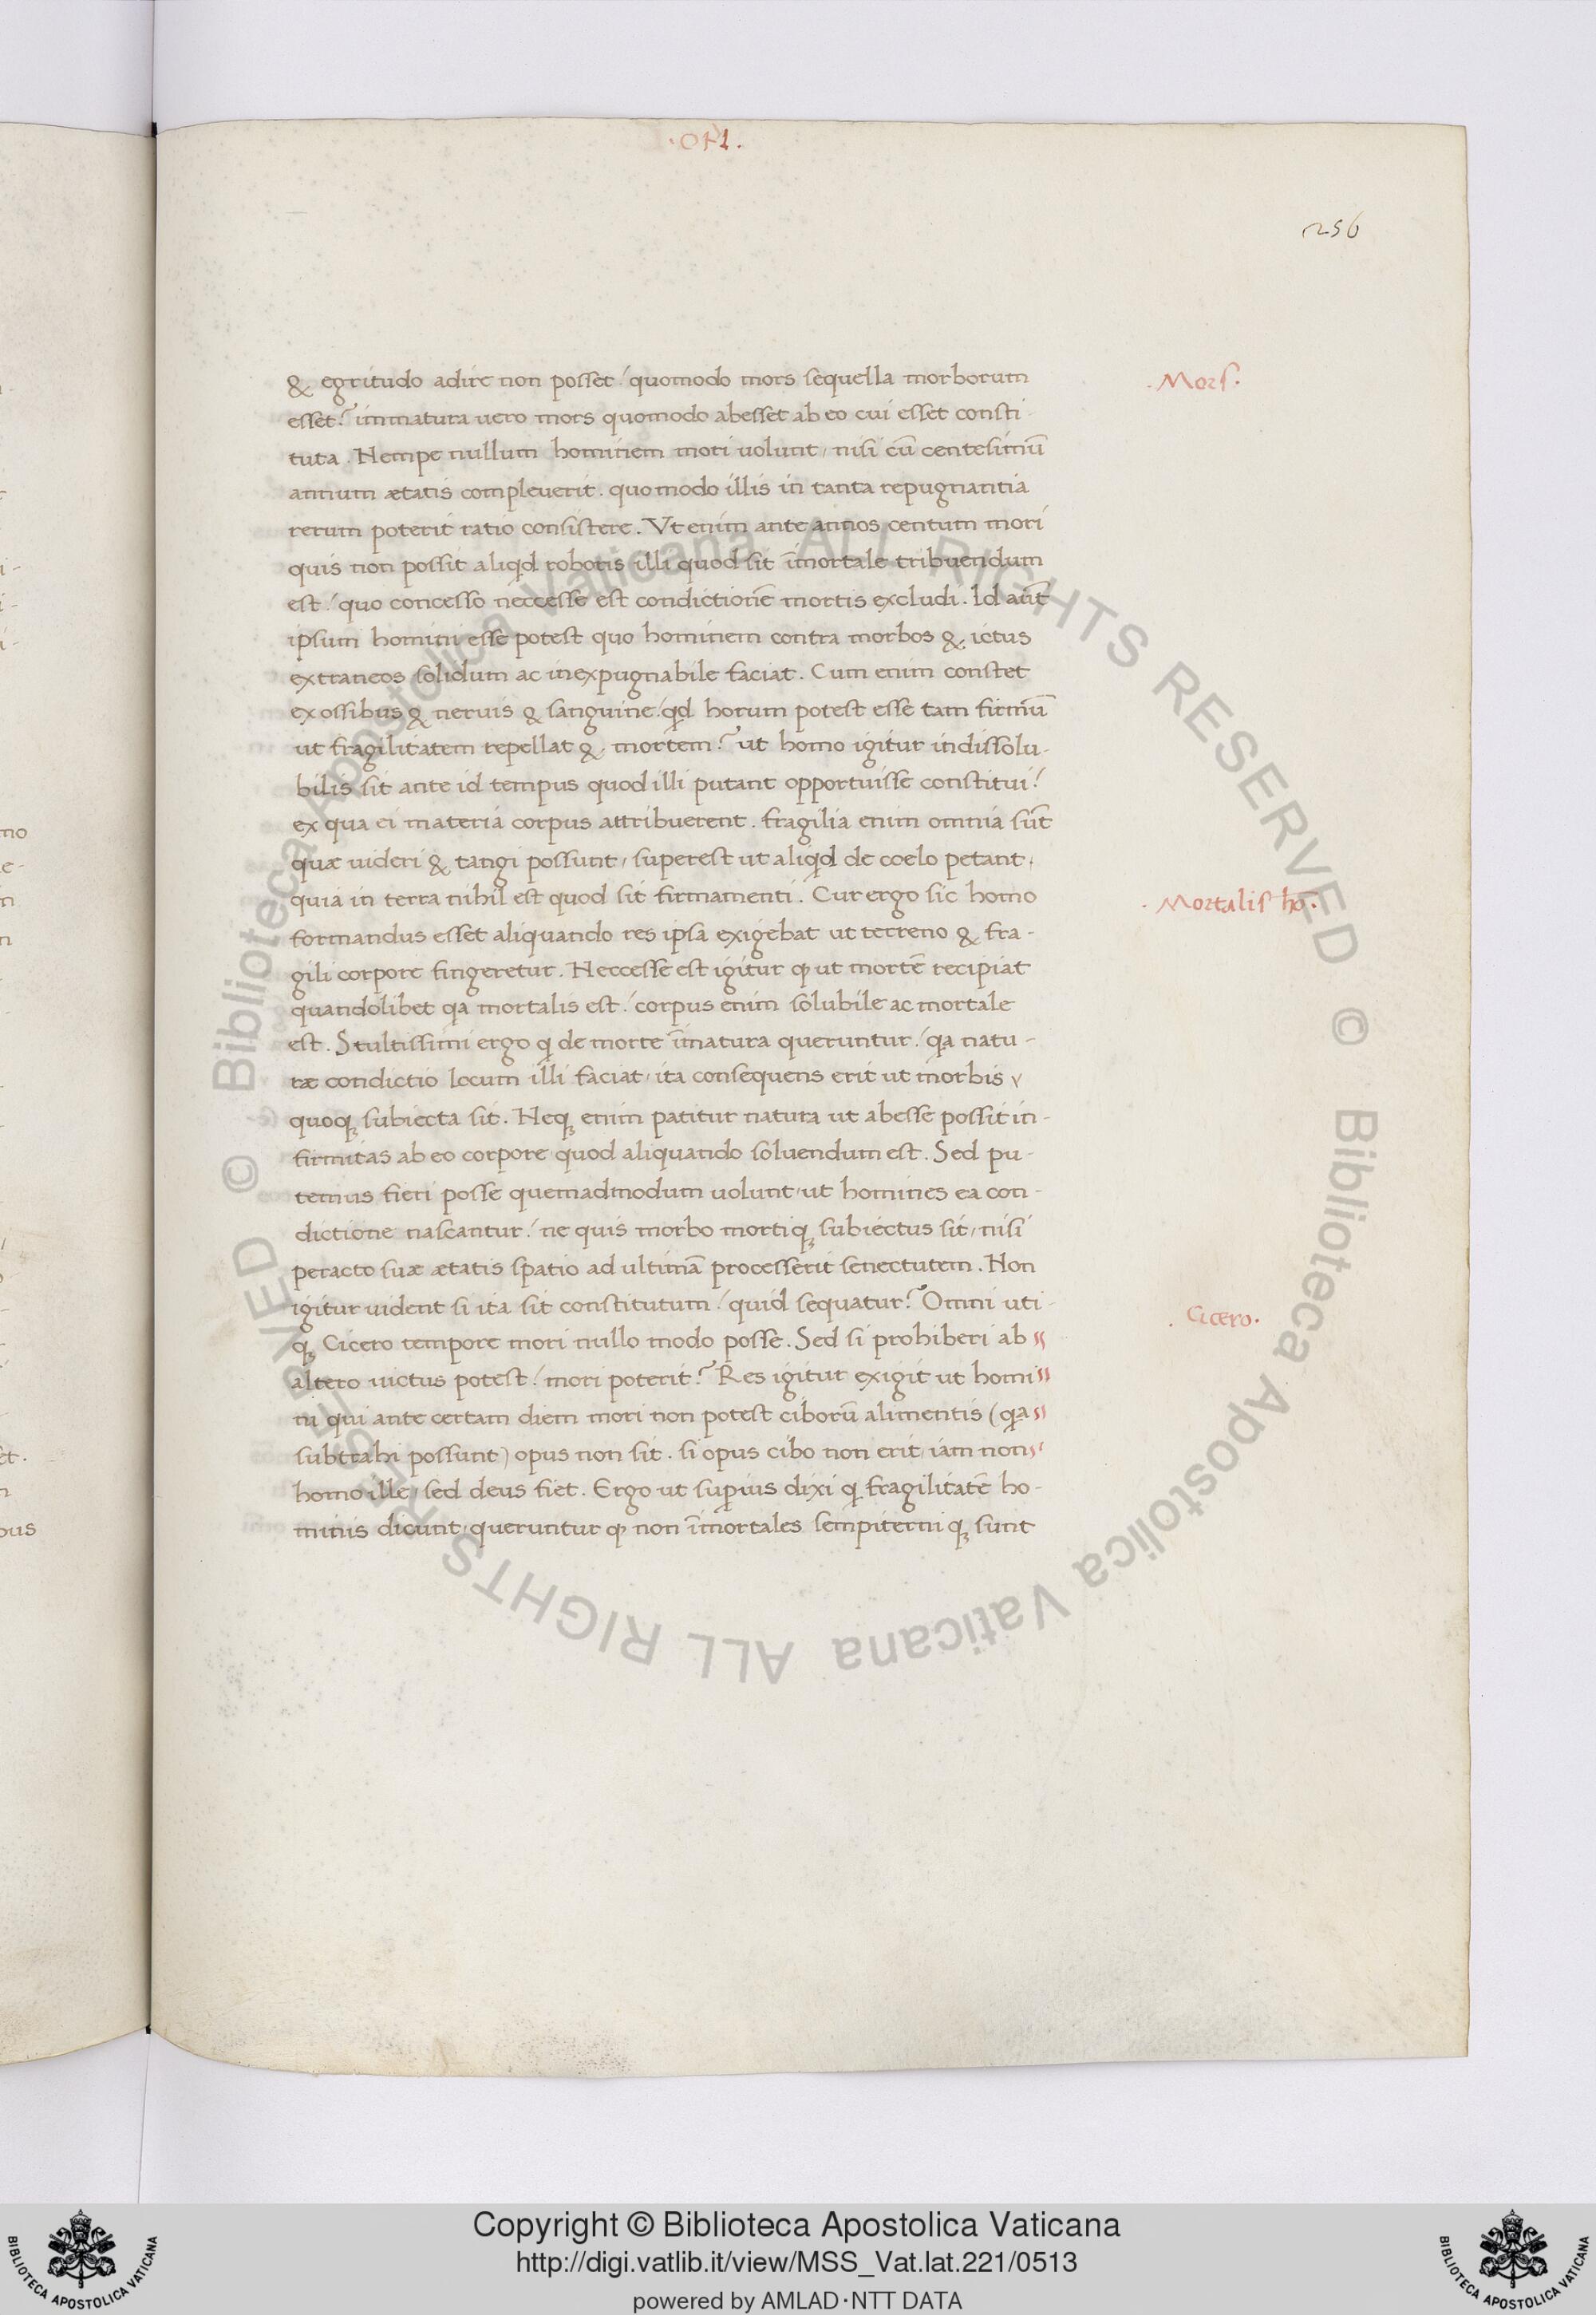 256
& egritudo adire non posset / quomodo mors sequella morborum
esset? immatura uero mors quomodo abesset ab eo cui esset consti
tuta. Nempe nullum hominem mori uolunt, nisi cū centesimū
annum ætatis compleuerit. quomodo illis in tanta repugnantia
rerum poterit ratio consistere. Vt enim ante annos centum mori
quis non possit aliqd roboris illi quod sit īmortale tribuendum
est / quo concesso neccesse est condictionē mortis excludi. Id aūt
ipsum homini esse potest quo hominem contra morbos & ictus
extraneos solidum ac inexpugnabile faciat. Cum enim constet
ex ossibus & neruis & sanguine / qd horum potest esse tam firmū
ut fragilitatem repellat & mortem? ut homo igitur indissolu-
bilis sit ante id tempus quod illi putant opportuisse constitui /
ex qua ei materia corpus attribuerent. fragilia enim omnia sūt
quæ uideri & tangi possunt, superest ut aliqd de coelo petant,
quia in terra nihil est quod sit firmamenti. Cur ergo sic homo
formandus esset aliquando res ipsa exigebat ut terreno & fra-
gili corpore fingeretur. Neccesse est igitur ꝙ ut mortē recipiat
quandolibet qa mortalis est / corpus enim solubile ac mortale
est. Stultissimi ergo q de morte īmatura queruntur / qa natu-
ræ condictio locum illi faciat, ita consequens erit ut morbis
quoqꝫ subiecta sit. Neqꝫ enim patitur natura ut abesse possit in-
firmitas ab eo corpore quod aliquando soluendum est. Sed pu-
temus fieri posse quemadmodum uolunt, ut homines ea con-
dictione nascantur / ne quis morbo mortiqꝫ subiectus sit, nisi
peracto suæ ætatis spatio ad ultimā processerit senectutem. Non
igitur uident si ita sit constitutum / quid sequatur? Omni uti-
qꝫ Cicero tempore mori nullo modo posse. Sed si prohiberi ab
altero uictus potest / mori poterit? Res igitur exigit ut homi
ni qui ante certam diem mori non potest ciborū alimentis (qa
subtrahi possunt) opus non sit. si opus cibo non erit, iam non
homo ille, sed deus fiet. Ergo ut supius dixi q fragilitatē ho-
minis dicunt, queruntur ꝙ non īmortales sempiterni qꝫ sunt
. Mors.
. Mortalis hō.
. Cicero.
Copyright © Biblioteca Apostolica Vaticana
http://digi.vatlib.it/view/MSS_Vat.lat.221/0513
powered by AMLAD·NTT DATA
BIBLIOTECA APOSTOLICA VATICANA
BIBLIOTECA APOSTOLICA VATICANA
© Biblioteca Apostolica Vaticana ALL RIGHTS RESERVED © Biblioteca Apostolica Vaticana ALL RIGHTS RESERVED